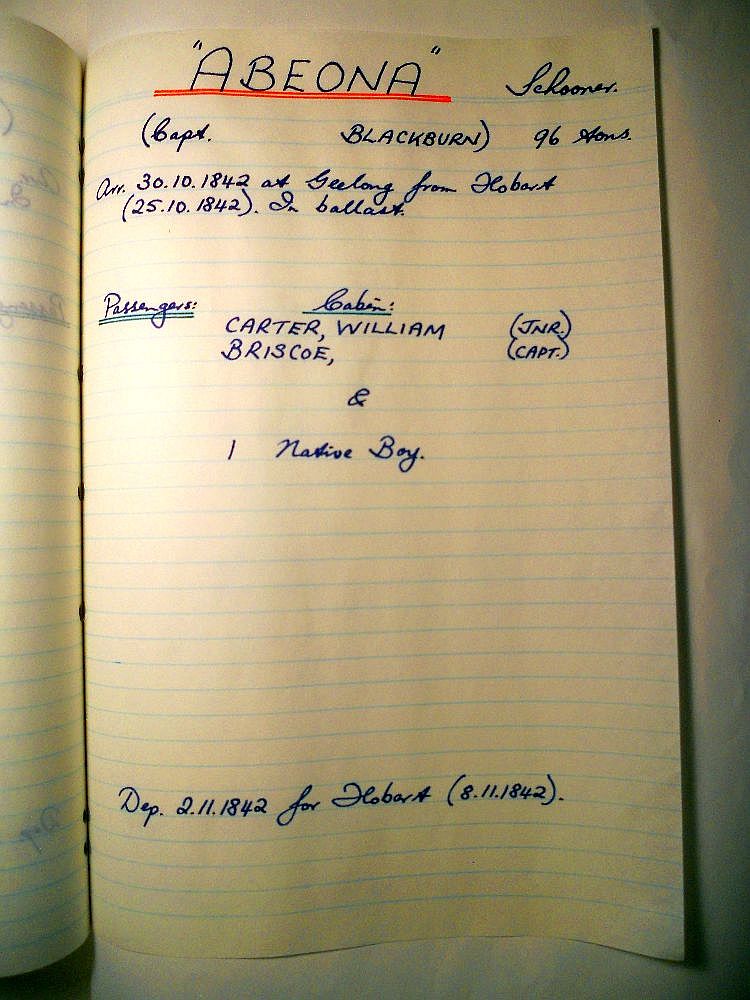 "ABEONA" Schooner.
(Capt. BLACKBURN) 96 tons.
Arr. 30.10.1842 at Geelong from Hobart
(25.10.1842). In ballast.
Passengers: Cabin:
CARTER, WILLIAM (JNR.)
BRISCOE, (CAPT.)
&
1 Native Boy.
Dep. 2.11.1842 for Hobart (8.11.1842).